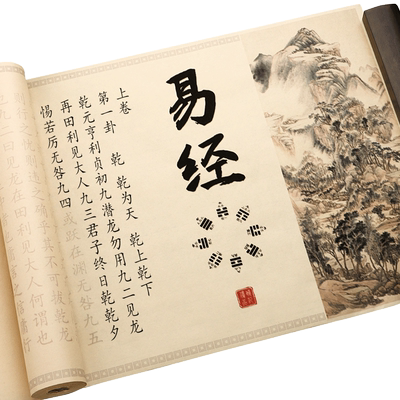 易经
上卷
第一卦 乾 乾为天 乾上乾下
乾元亨利贞初九潜龙勿用九二见龙
再田利见大人九三君子终日乾乾夕
惕若厉无咎九四或跃在渊无咎九五
确乎其不可拔乾龙
利见大人何谓也